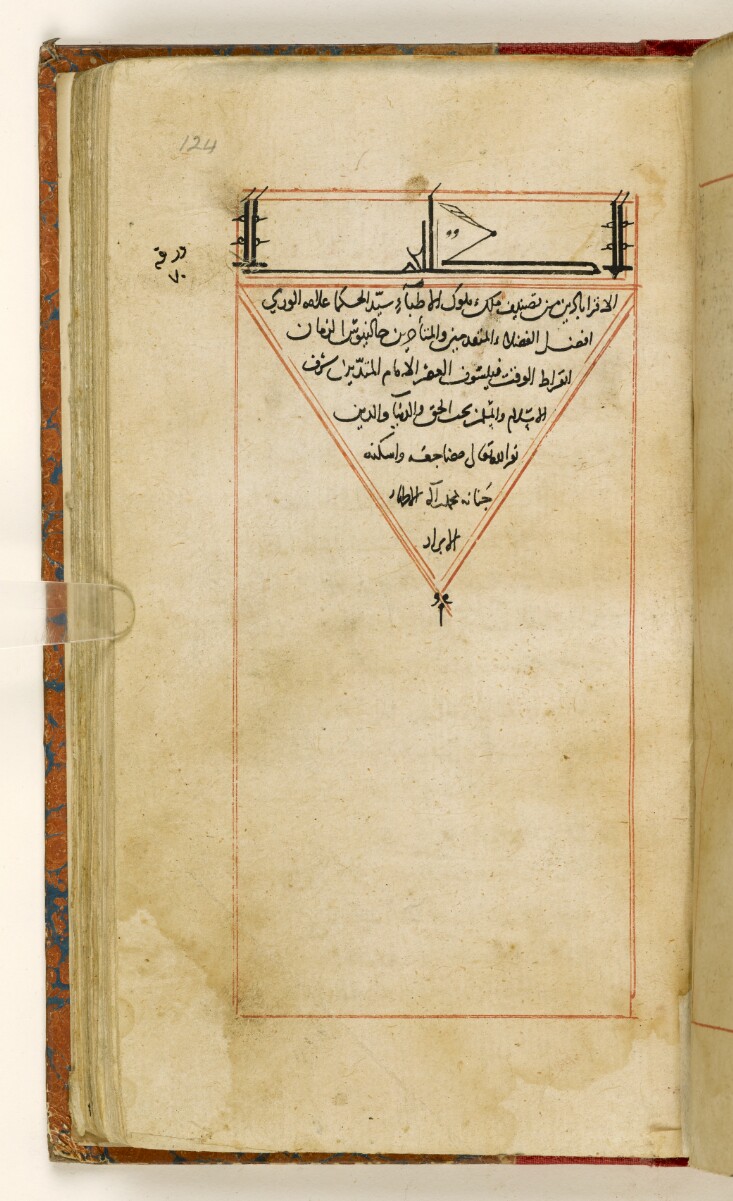 124
ورقة
٧٠
كتاب
الاقراباذين من تصنيف ملك ملوك الاطباء سيد الحكما علامه الوري
افضل الفضلاء المتقدمين والمتأخرين جالينوس الزمان
ابقراط الوقت فيلسوف العصر الامام شرف
الاسلام والمسلمين نجيب الحق والدنيا والدين
نور الله تعالى مضاجعه واسكنه
جنانه بمحمد وآله الاطهار
الابرار